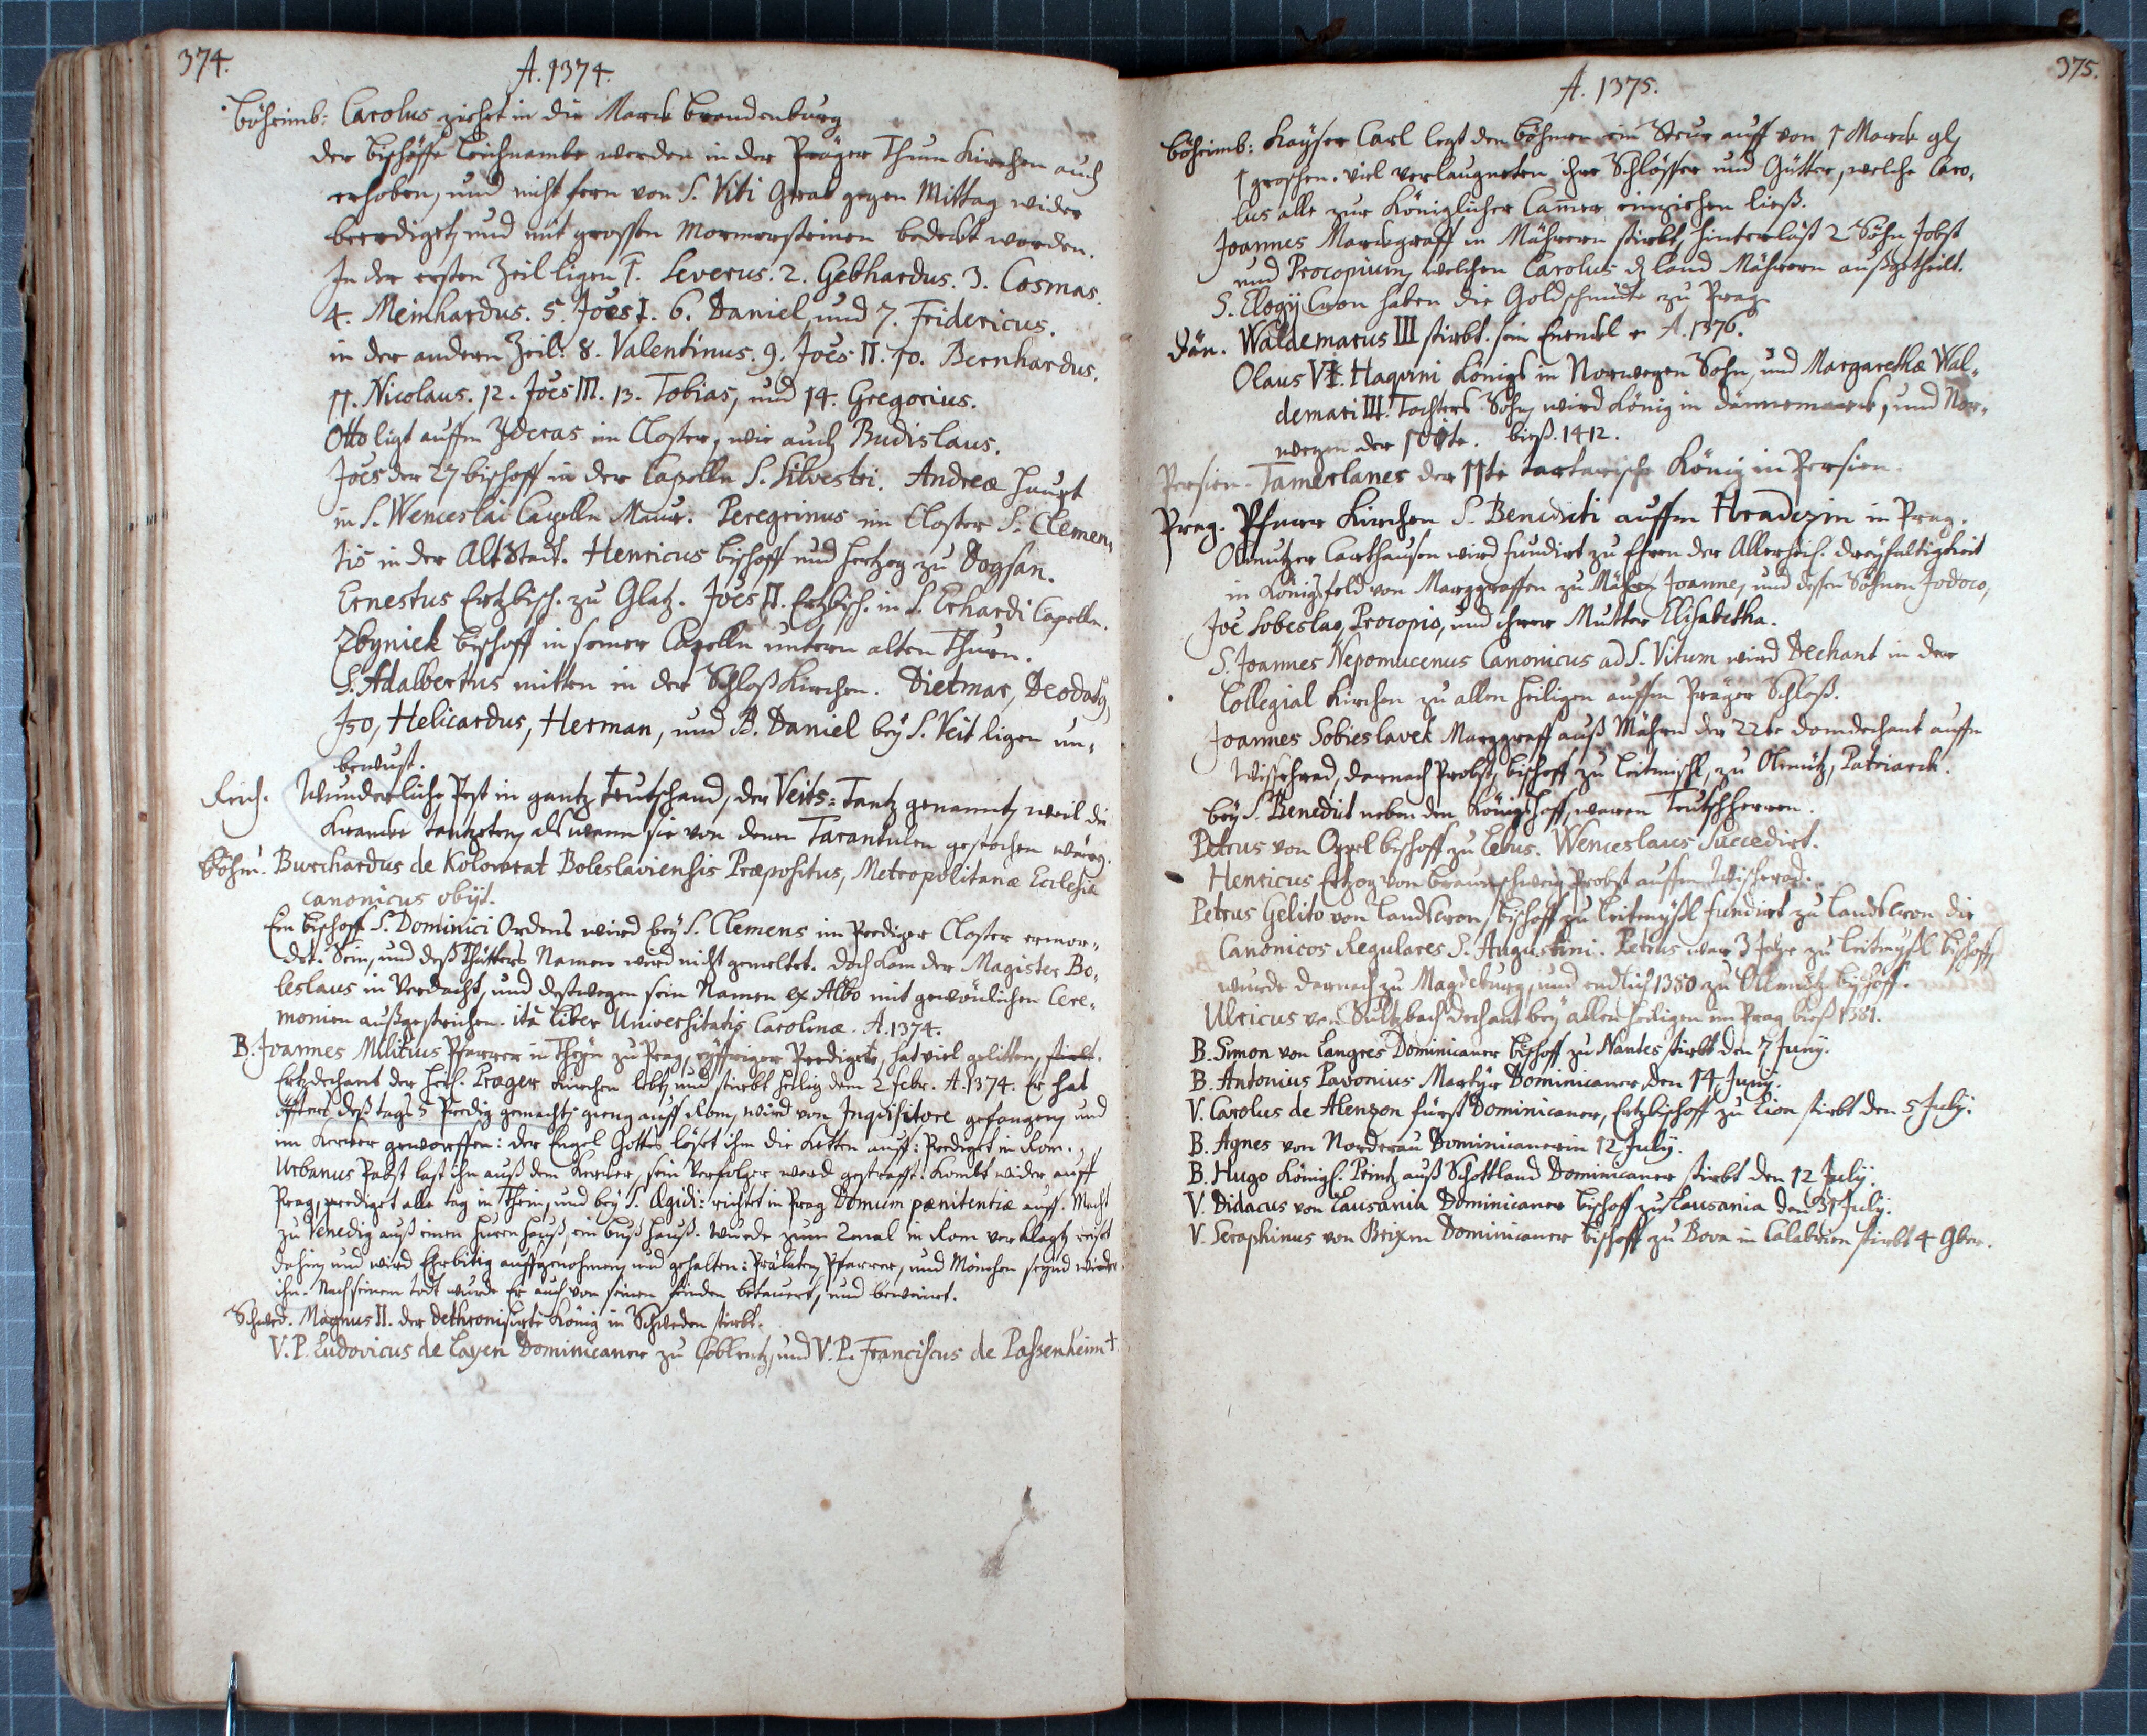 374.
A. 1374.
Böheimb: Carolus ziehet in die Marck Brandenburg
der Bischöffe Leichnambe werden in der Präger Thum Kirchen auch
erhoben, und nicht fern von S. Viti Grab gegen Mittag wider
beerdiget, und mit grossen Marmersteinen bedeckt worden.
In der ersten Zeil ligen 1. Severus. 2. Gebhardus. 3. Cosmas.
4. Meinhardus. 5. Joës I. 6. Daniel, und 7. Fridericus.
in der andern Zeil: 8. Valentinus. 9. Joës II. 10. Bernhardus.
11. Nicolaus. 12. Joës III. 13. Tobias, und 14. Gregorius.
Otto ligt auffm Zderas im Closter, wie auch Budislaus.
Joës der 27 bischoff in der Capelln S. Silvestri. Andreæ Haupt
in S. Wenceslai Capelln Maur. Peregrinus im Closter S. Clemen,
tis in der Alt Stadt. Henricus bischoff und Hertzog zu Dogsan.
Ernestus Ertzbisch. zu Glatz. Joës II. Ertzbisch. in S. Erhardi Capelln.
Zbyniek bischoff in seiner Capelln untern alten Thurn.
S. Adalbertus mitten in der Schloß Kirchen. Dietmar, Deodatg,
Izo, Helicardus, Herman, und B. Daniel bey S. Veit ligen un,
bewust.
Reich. Wunderliche Pest in gantz Teutschand, der Veits-Tantz genannt, weil die
Krancke tantzeten, als wann sie von denen Tarantulen gestochen wären.
Böhm. Burchardus de Kolowrat Boleslaviensis Præpositus, Metropolitanæ Ecclesiæ
canonicus obijt.
Ein bischoff S. Dominici Ordens wird bey S. Clemens im Prediger Closter ermor-
det. Sein, und deß Thätters Namen wird nicht gemeltet. doch kam der Magister Bo-
leslaus in Verdacht, und destwegen sein Namen ex Albo mit gewönlichen Cere-
monien außgestrichen. ità Liber Universitatis Carolinæ. A. 1374.
B. Joannes Militius Pfarrer in Theyn zu Prag, eyffriger Prediger, hat viel gelitten, stirbt.
Ertzdechant der Prager Kirchen lebt, und stirbt heilig dem 2 Febr. A. 1374. Er hat
öffters deß tags 5 Predig gemacht, gieng auff Rom, wird von Inquisitore gefangen, und
im Kercker geworffen: der Engel Gottes löset ihm die Ketten auff: Prediget in Rom.
Urbanus Pabst last ihn auß dem Kercker, sein Verfolger ward gestrafft. Kombt wider auff
Prag, prediget alle tag in Thein, und bey S. Ægidi: richtet in Prag Domum pænitentiæ auff. Macht
zu Venedig auß einen Huren hauß, ein buß hauß. Wurde zum 2mal in Rom verklagt, reist
dahin und wird Ehrbitig auffgenohmen, und gehalten: Prälaten, Pfarrer, und Mönchen seynd wider
ihn. Nach seinem todt wurde Er auch von seinen feinden betauert, und beweinet.
Schwed. Magnus II. der dethronisirte König in Schweden stirbt.
V. P. Ludovicus de Layen Dominicaner zu Coblentz, und V. P. Franciscus de Passenheim †
375.
A. 1375.
Böheimb: Kayser Carl legt den Böhmen ein Steur auff von 1 Marck
1 groschen. viel verlaugneten ihre Schlösser und Gütter, welche Caro,
lus alle zur Königlicher Cam̅er einziehen ließ.
Joannes Marckgraff in Mähren stirbt, hinterläst 2 Söhn Jobst
und Procopium, welchen Carolus land Mähren außgetheilt.
S. Elogij Cron haben die Goldschmide zu Prag.
Dän. Waldemarus III stirbt. sein A. 1376.
Olaus VI. Haquini Königs in Norwegen Sohn, und Margarethæ Wal,
demari III. Tochters Sohn, wird König in Dännemarck, und Nor,
wegen der biß. 1412.
Persien. Tamerlanes der 11te tartarische König in Persien.
Prag. Pfarr Kirchen S. Benedicti auffm Hradczin in Prag.
Olmutzer Carthausen wird fundirt zu Ehren der Allerheil. dreyfaltigkeit
in Königsfeld von Marggraffen zu Mähren Joanne, und dessen Söhnen Jodoco,
Joë Sobeslao, Procopio, und ihrer Mutter Elisabetha.
S. Joannes Nepomucenus Canonicus ad S. Vitum wird Dechant in der
Collegial Kirchen zu allen Heiligen auffm Präger Schloß.
Joannes Sobieslavek Marggraff auß Mähren der 22te Domdechant auffm
Wissehrad, darnach Probst, bischoff zu Leitmischl, zu Olmütz, Patriarch.
bey S. Benedict neben den Königshoff, waren Teutschherren.
Petrus von Oppel bischoff zu Lebus. Wenceslaus Succedirt.
Henricus Hertzog von Braunschweig Probst auffm Wischerad.
Petrus Gelito von Landscron, bischoff zu Leitmyßl fundirt zu Landscron die
Canonicos Regulares S. Augustini. Petrus war 3 Jahr zu Leitmyßl bischoff,
wurde darnach zu Magdeburg, und endlich 1380 zu Ollmütz bischoff.
Ulricus von Sultzbach dechant bey allen Heiligen im Prag bieß 1381.
B. Simon von Langres Dominicaner bischoff zu Nantes stirbt den 7 Junij.
B. Antonius Pavonius Martyr Dominicaner, den 14 Junij.
V. Carolus de Alenzon fürst Dominicaner, Ertzbischoff zu Lion stirbt den 5 Julij.
B. Agnes von Norderau Dominicanerin 12 Julij.
B. Hugo Königl. Printz auß Schottland Dominicaner stirbt den 12 Julij.
V. Didacus von Lausania Dominicaner bischoff zu Lausania den 31 Julij.
V. Seraphinus von Brixen Dominicaner bischoff zu Bova in Calabrien stirbt 4 9ber.